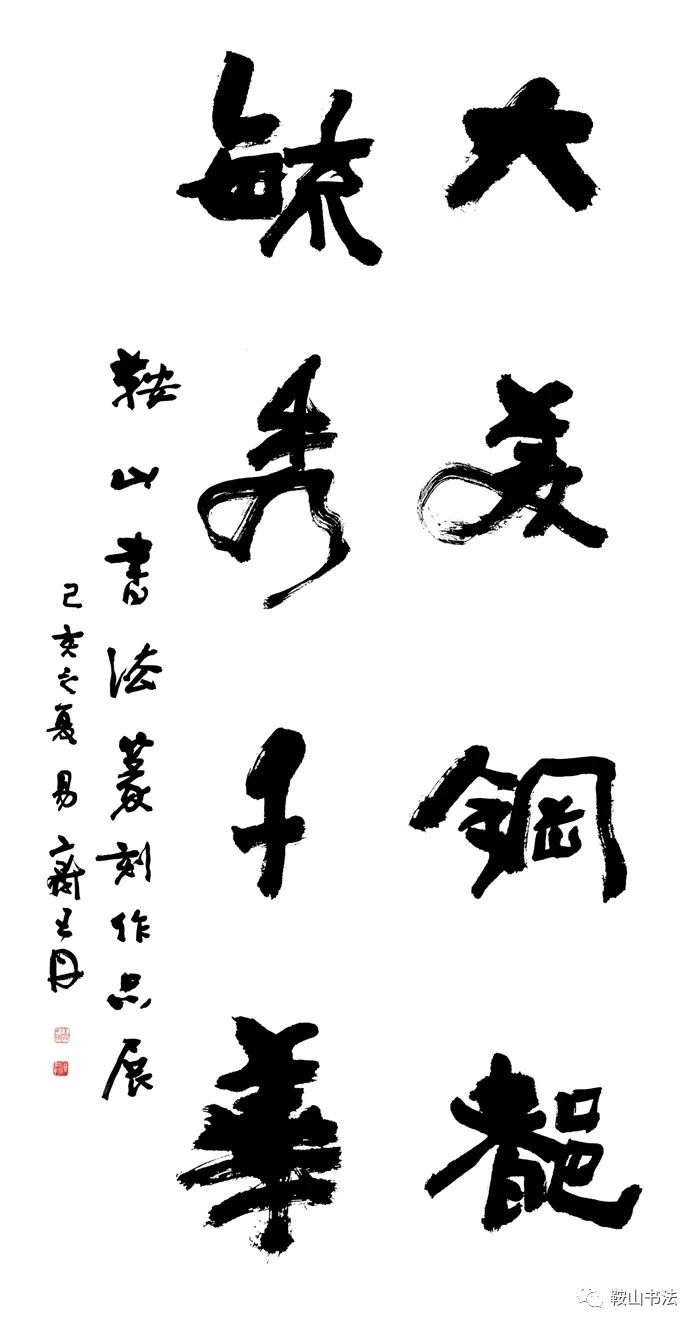 大美鋼都
毓秀千華
鞍山書法篆刻作品展
己亥之夏易齋書丹
鞍山书法